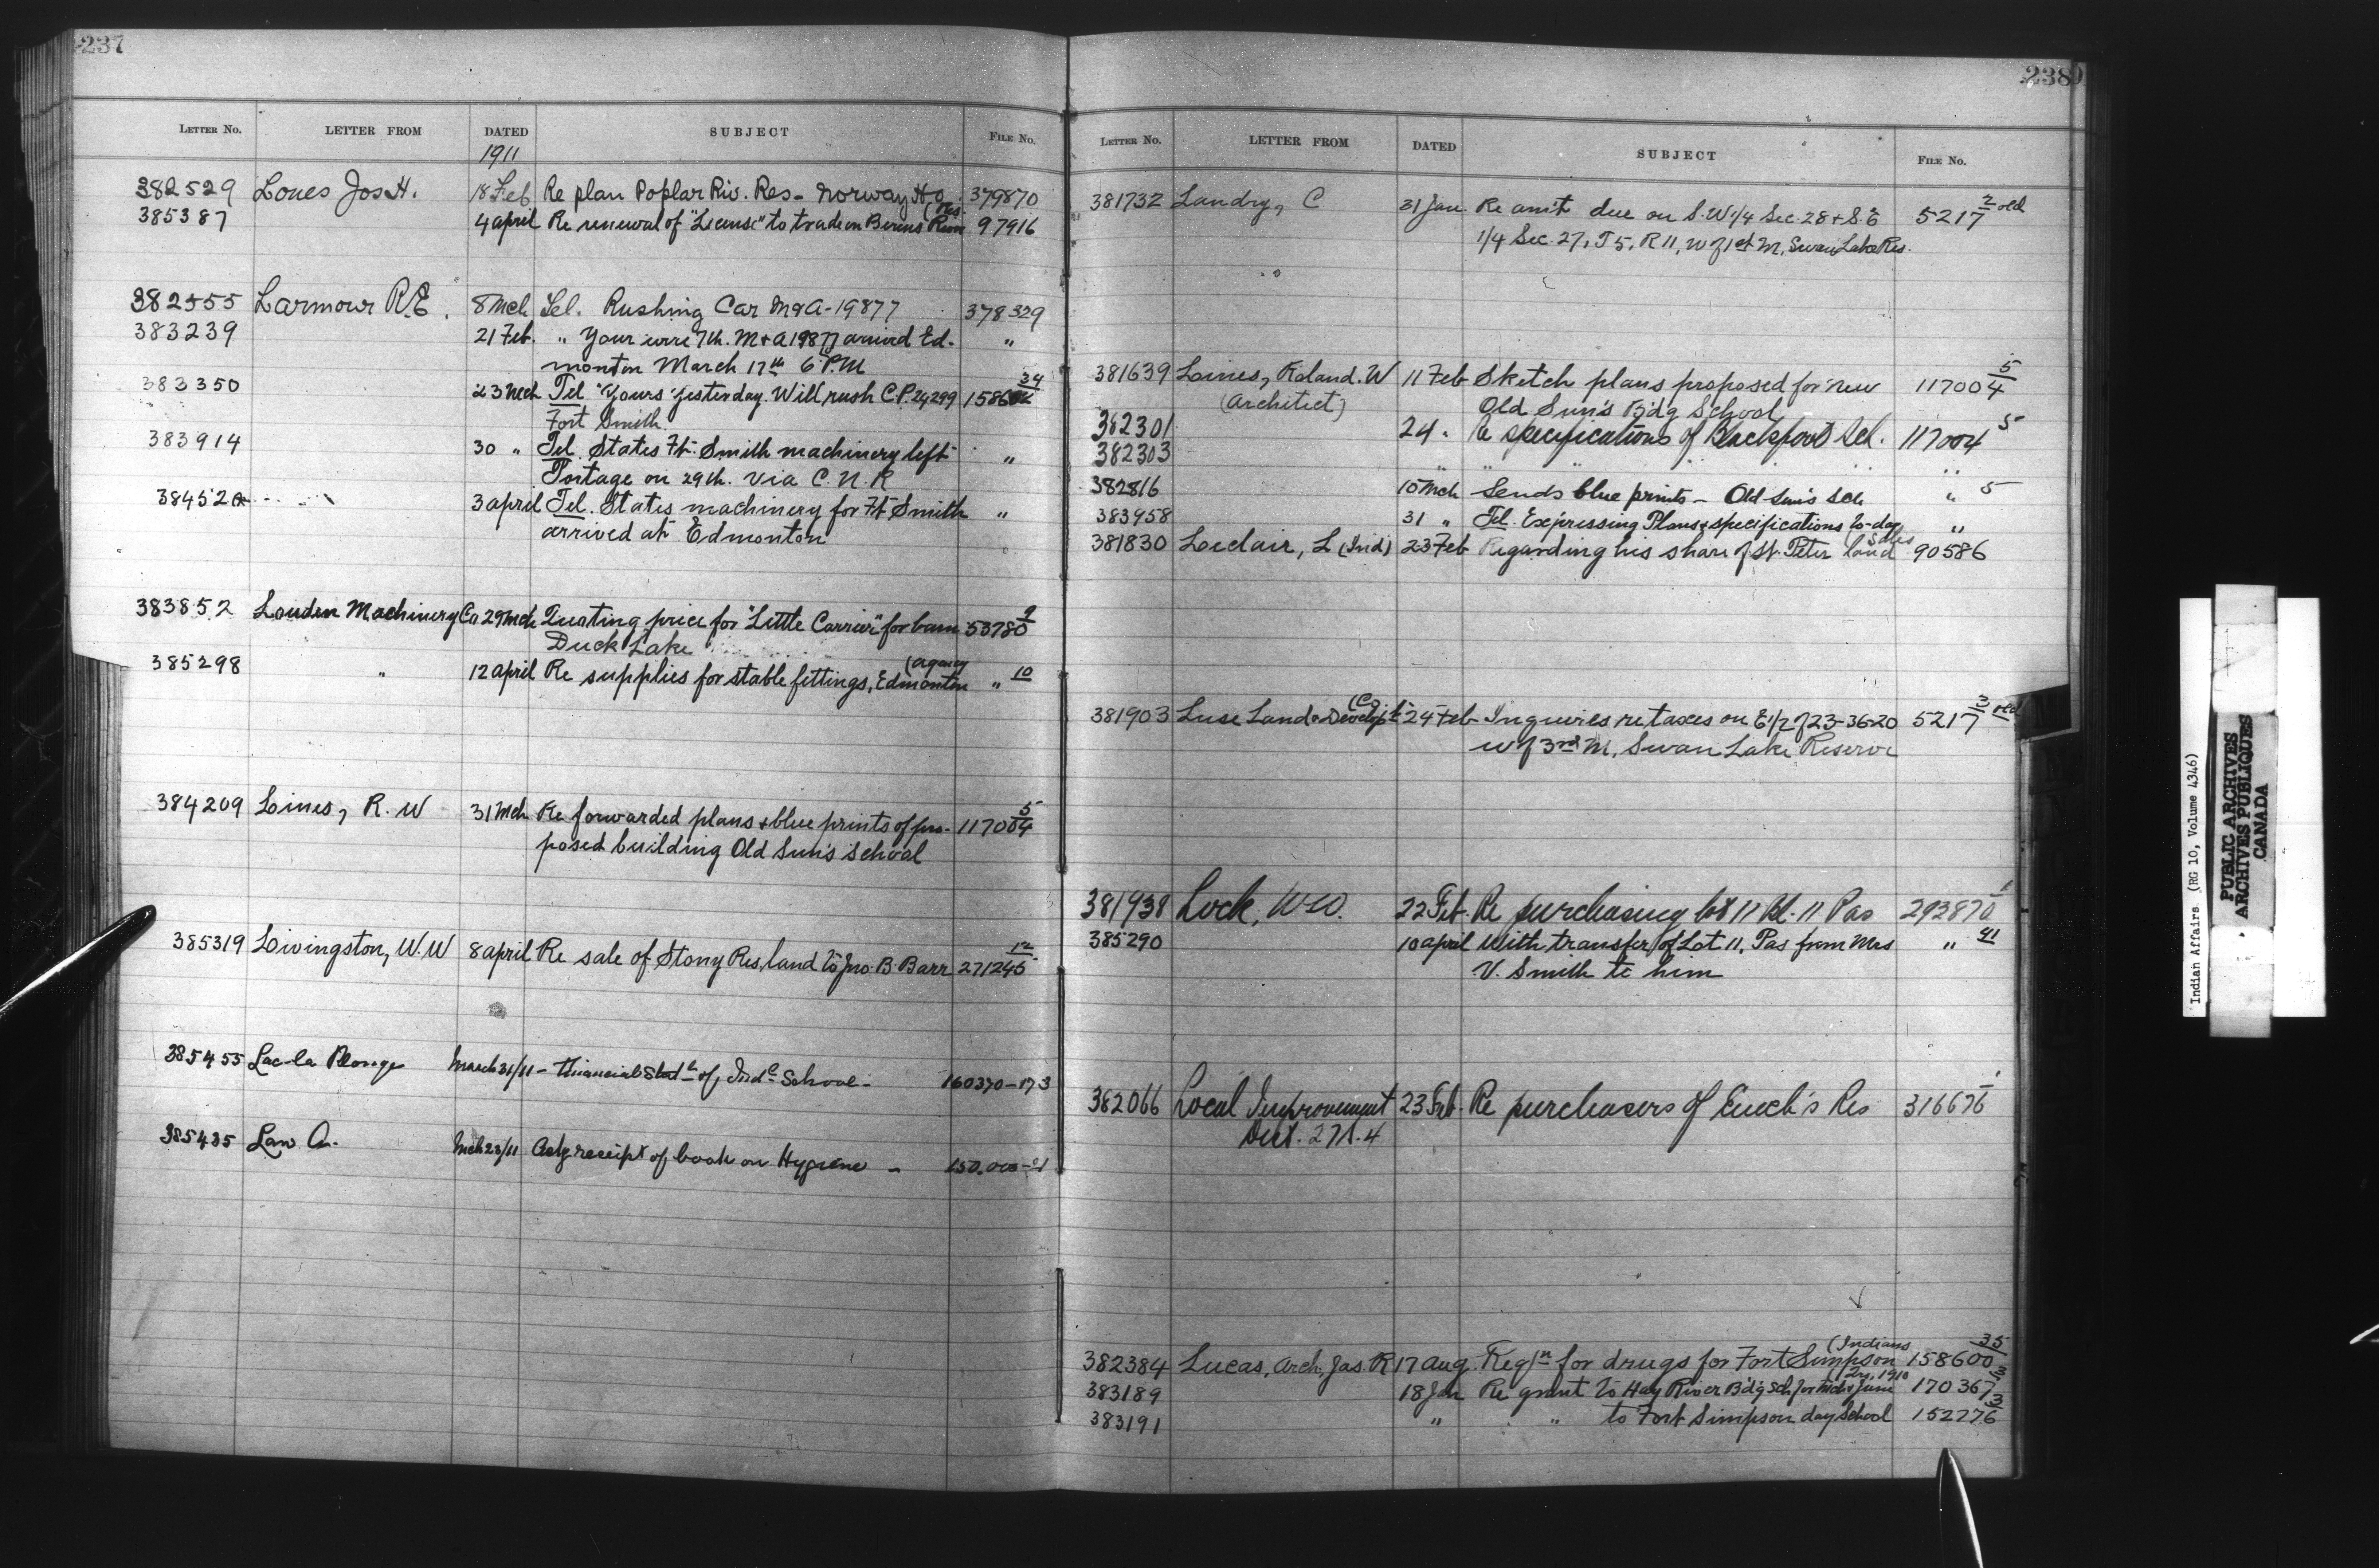 237
LETTER No. LETTER FROM DATED SUBJECT FILE No.
1911
382529 Loues Jos H. 18 Feb Re plan Poplar Riv. Res - Norway Ho. 379870
385387 4 april Re renewal of "License" to trade on Berens River (Res. 97916
382555 Larmour R.E. 8 Mch Tel. Rushing Car M&A-19877 378329
383239 21 Feb. " Your wire 7th. M+A 19877 arrived Ed-
monton March 17th 6 P.M. "
383350 23 Mch Tel "Yours yesterday. Will rush C.P. 24299 1586 34
Fort Smith.
383914 30 " Tel. States Ft. Smith machinery left "
Portage on 29th. via C. N. R
384520 3 april Tel. States machinery for Ft Smith "
arrived at Edmonton
383852 Louden Machinery Co 29 Mch Quoting price for "Little Carrier" for barn 53780 9
Duck Lake
385298 " 12 april Re supplies for stable fittings, Edmonton (agency " 10
384209 Lines, R. W 31 Mch Re forwarded plans & blue prints of pro- 117004 5
posed building Old Sun's School
385319 Livingston, W. W 8 april Re sale of Stony Res. land to Jno. B. Barr 271245 12
385455 Lac la Plonge March 31/11 - Financial Statt of Indl School - 160370-173
385435 Law A. Mch 23/11 Ackg receipt of book on Hygiene - 150.000-
238
LETTER No. LETTER FROM DATED SUBJECT FILE No.
381732 Landry, C 31 Jan. Re amt due on S.W. 1/4 Sec. 28 + S.E 5217 2 old
1/4 Sec. 27, T 5, R 11, W of 1st M, Swan Lake Res.
381639 Lines, Roland. W 11 Feb Sketch plans proposed for new 117004 5
(Architect) Old Sun's Bdg School
382301 24 " Re specifications of Blackfoot Sch. 117004 5
382303 " " " " "
382816 10 Mch Sends blue prints - Old Sun's Sch " 5
383958 31 " Tel. Expressing Plans & specifications to-day "
381830 Leclair, L (Ind) 23 Feb Regarding his share of St. Peter land Sales 90586
381903 Luse Land & Developt (Co. 24 Feb Inquiries re taxes on E 1/2 of 23-36-20 5217 3 old
W of 3rd M, Swan Lake Reserve
381938 Lock, W W. 22 Feb. Re purchasing lot 11 Bl. 11 Pas 292870 1
385290 10 april With transfer of Lot 11, Pas from Mrs " 41
V. Smith to him
382066 Local Improvement 23 Feb. Re purchasers of Enoch's Res 316676 1
Dist. 27 4
382384 Lucas, Arch. Jas. R 17 Aug. Reqn for drugs for Fort Simpson (Indians 158600 35
383189 18 Jan Re grant to Hay River Bdg Sch for Mch & June Qrs, 1910 170367 3
383191 " " to Fort Simpson day School 152776 3
Indian Affairs. (RG 10, Volume 4346)
PUBLIC ARCHIVES
ARCHIVES PUBLIQUES
CANADA